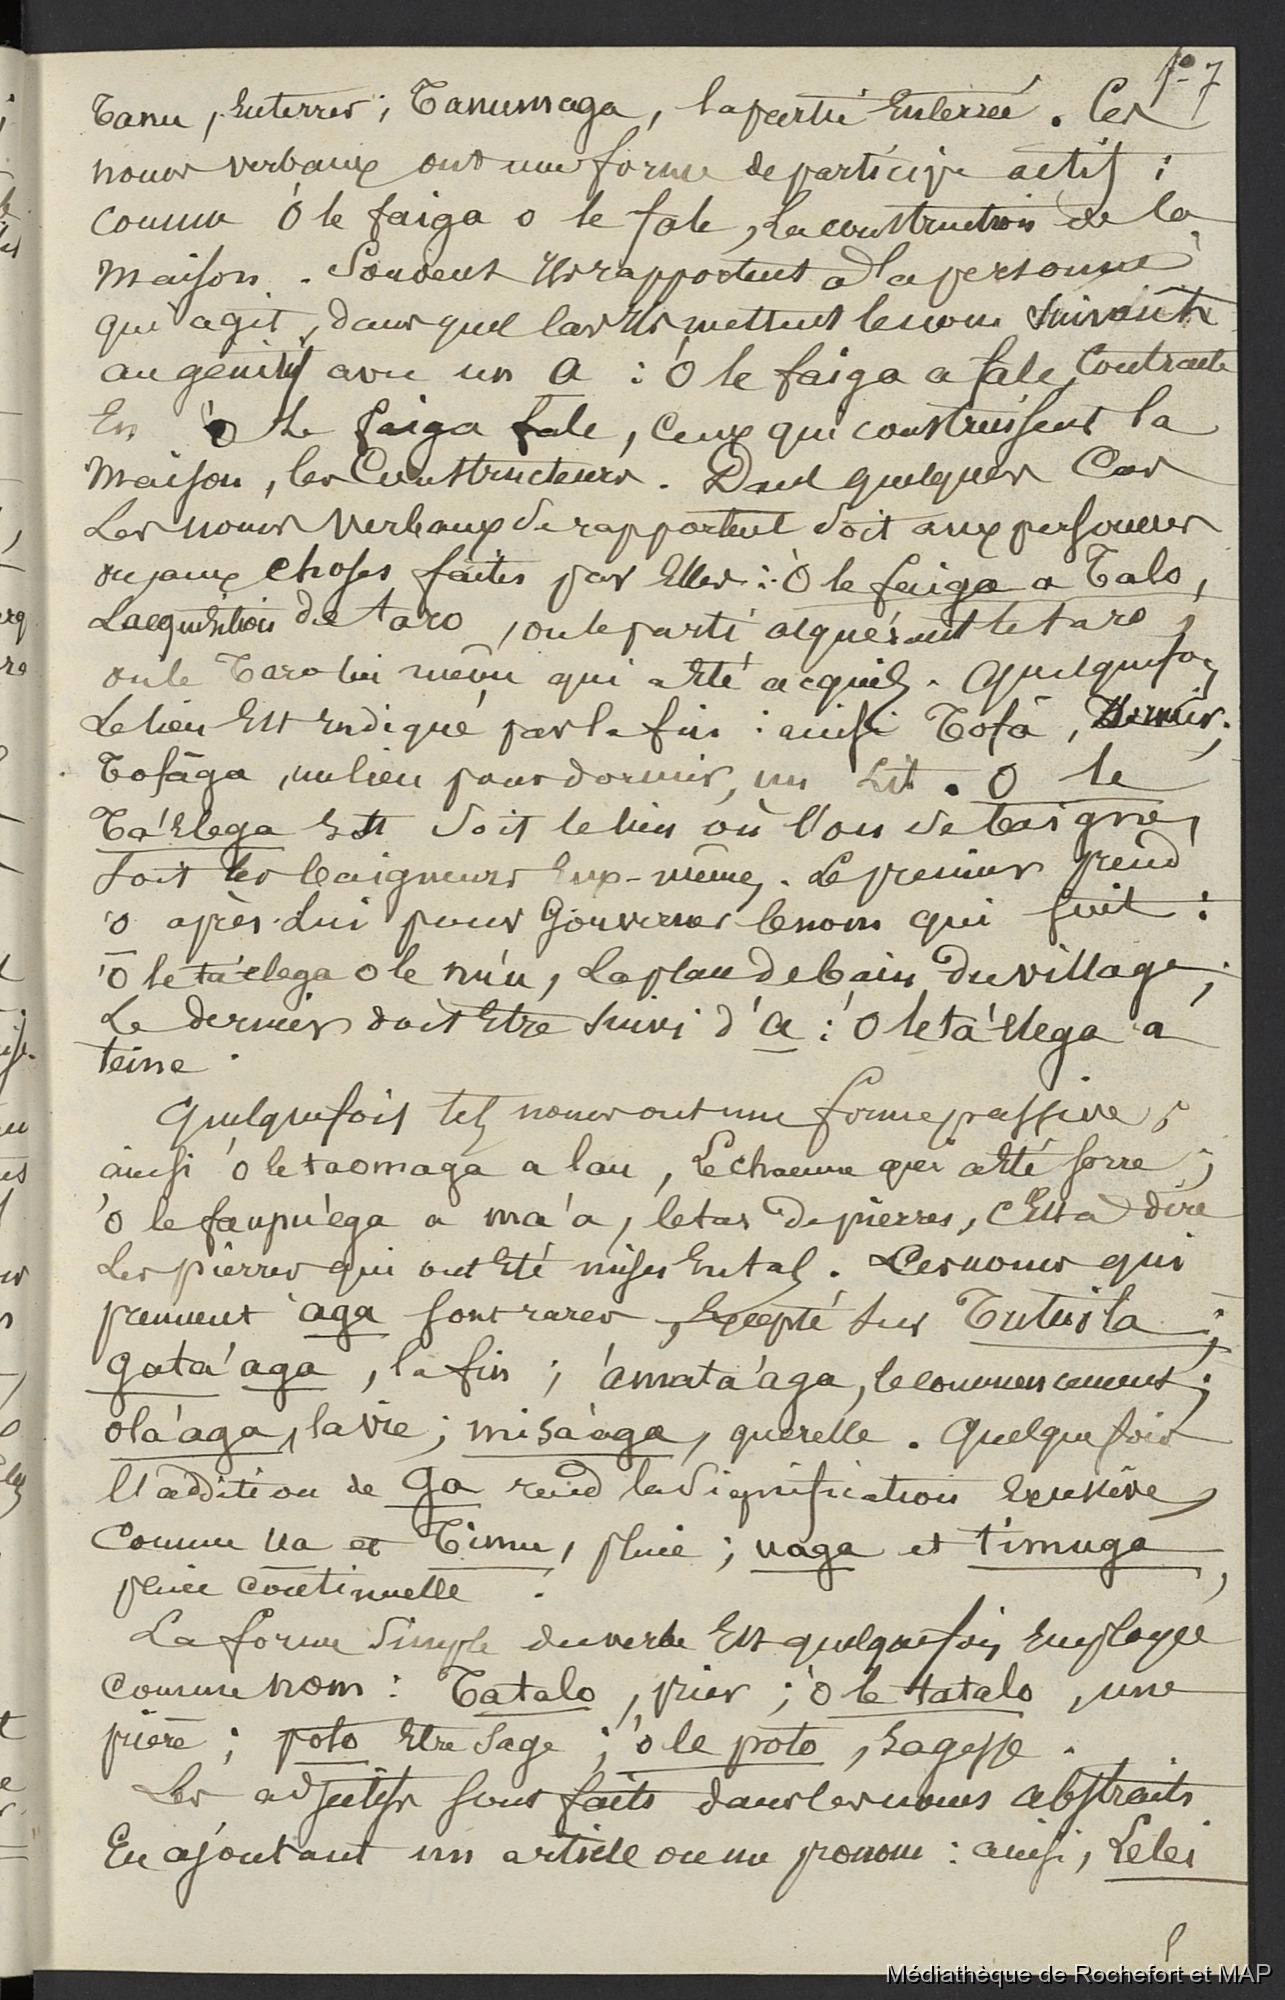 fo 7
Tanu, Enterrer ; Tanumaga, la partie Enterrée. Ces
noms verbaux ont une forme de participe actif ;
comme 'O le faiga o le fale, La construction de la
Maison. Souvent Ils rapportent a la personne
qui agit, dans quel cas Ils mettent le nom suivant
au génitif avec un a : 'O le faiga a fale, Contracté
En 'O le faiga fale, Ceux qui construisent la
Maison, les Constructeurs. Dans quelques Cas
Les noms Verbaux se rapportent soit aux personnes
ou aux choses faites par Elles : 'O le faiga a Talo,
L'acquisition de taro, ou le parti acquérant le taro,
ou le Taro lui même qui a Eté acquis. Quelquefois
Le lieu Est Indiqué par la fin : ainsi Tofā, Dormir ;
Tofāga, un lieu pour dormir, un Lit. O le
Ta'Elega Est soit le lieu où l'on se baigne,
soit les baigneurs Eux-mêmes. Le premier prend
'o après lui pour Gouverner le nom qui suit :
'O le ta'elega o le nu'u, La place de bain Du village ;
Le dernier doit Etre suivi d'a : 'O le tā'Elega a
teine.
Quelquefois tels noms ont une forme passive ;
ainsi 'o le taomaga a lau, Le chaume qui a Eté serré ;
'o le faupu'ega a ma'a, le tas De pierres, C'Est a dire
Les pierres qui ont Eté mises En tas. Les noms qui
prennent 'aga sont rares, Excepté sur Tutuila ;
gata'aga, la fin ; 'amata'aga, le commencement ;
ola'aga, la vie ; misa'aga, querelle. Quelquefois
l'addition de ga rend la signification Excessive,
Comme ua et Timu, pluie ; uaga et timuga,
pluie continuelle.
La forme Simple du verbe Est quelquefois Employée
comme nom : Tatalo, prier ; 'o le tatalo, une
prière ; poto Etre sage ; 'o le poto, sagesse.
Les adjectifs sont faits dans les noms abstraits
En ajoutant un article ou un pronom : ainsi, Lelei
Médiathèque de Rochefort et MAP